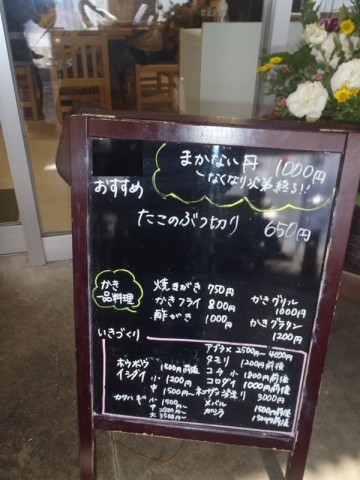 まかない丼 1000円
なくなり次第終る!!
おすすめ
たこのぶつ切り 650円
かき
一品料理
焼きがき 750円
かきフライ 800円
酢がき 1000円
かきグリル
1000円
かきグラタン
1200円
いきづくり
ホウボウ 1500円前後
イシダイ 小 1200円
中 1500円〜
カワハギ 小 1500〜
中 2500〜
大 3500〜
アブラメ 2500円〜4000円
タモリ 1200円前後
コチ 小 1800円前後
コロダイ 1000円前後
3000円
メバル 1500円前後
ガシラ 1500円前後